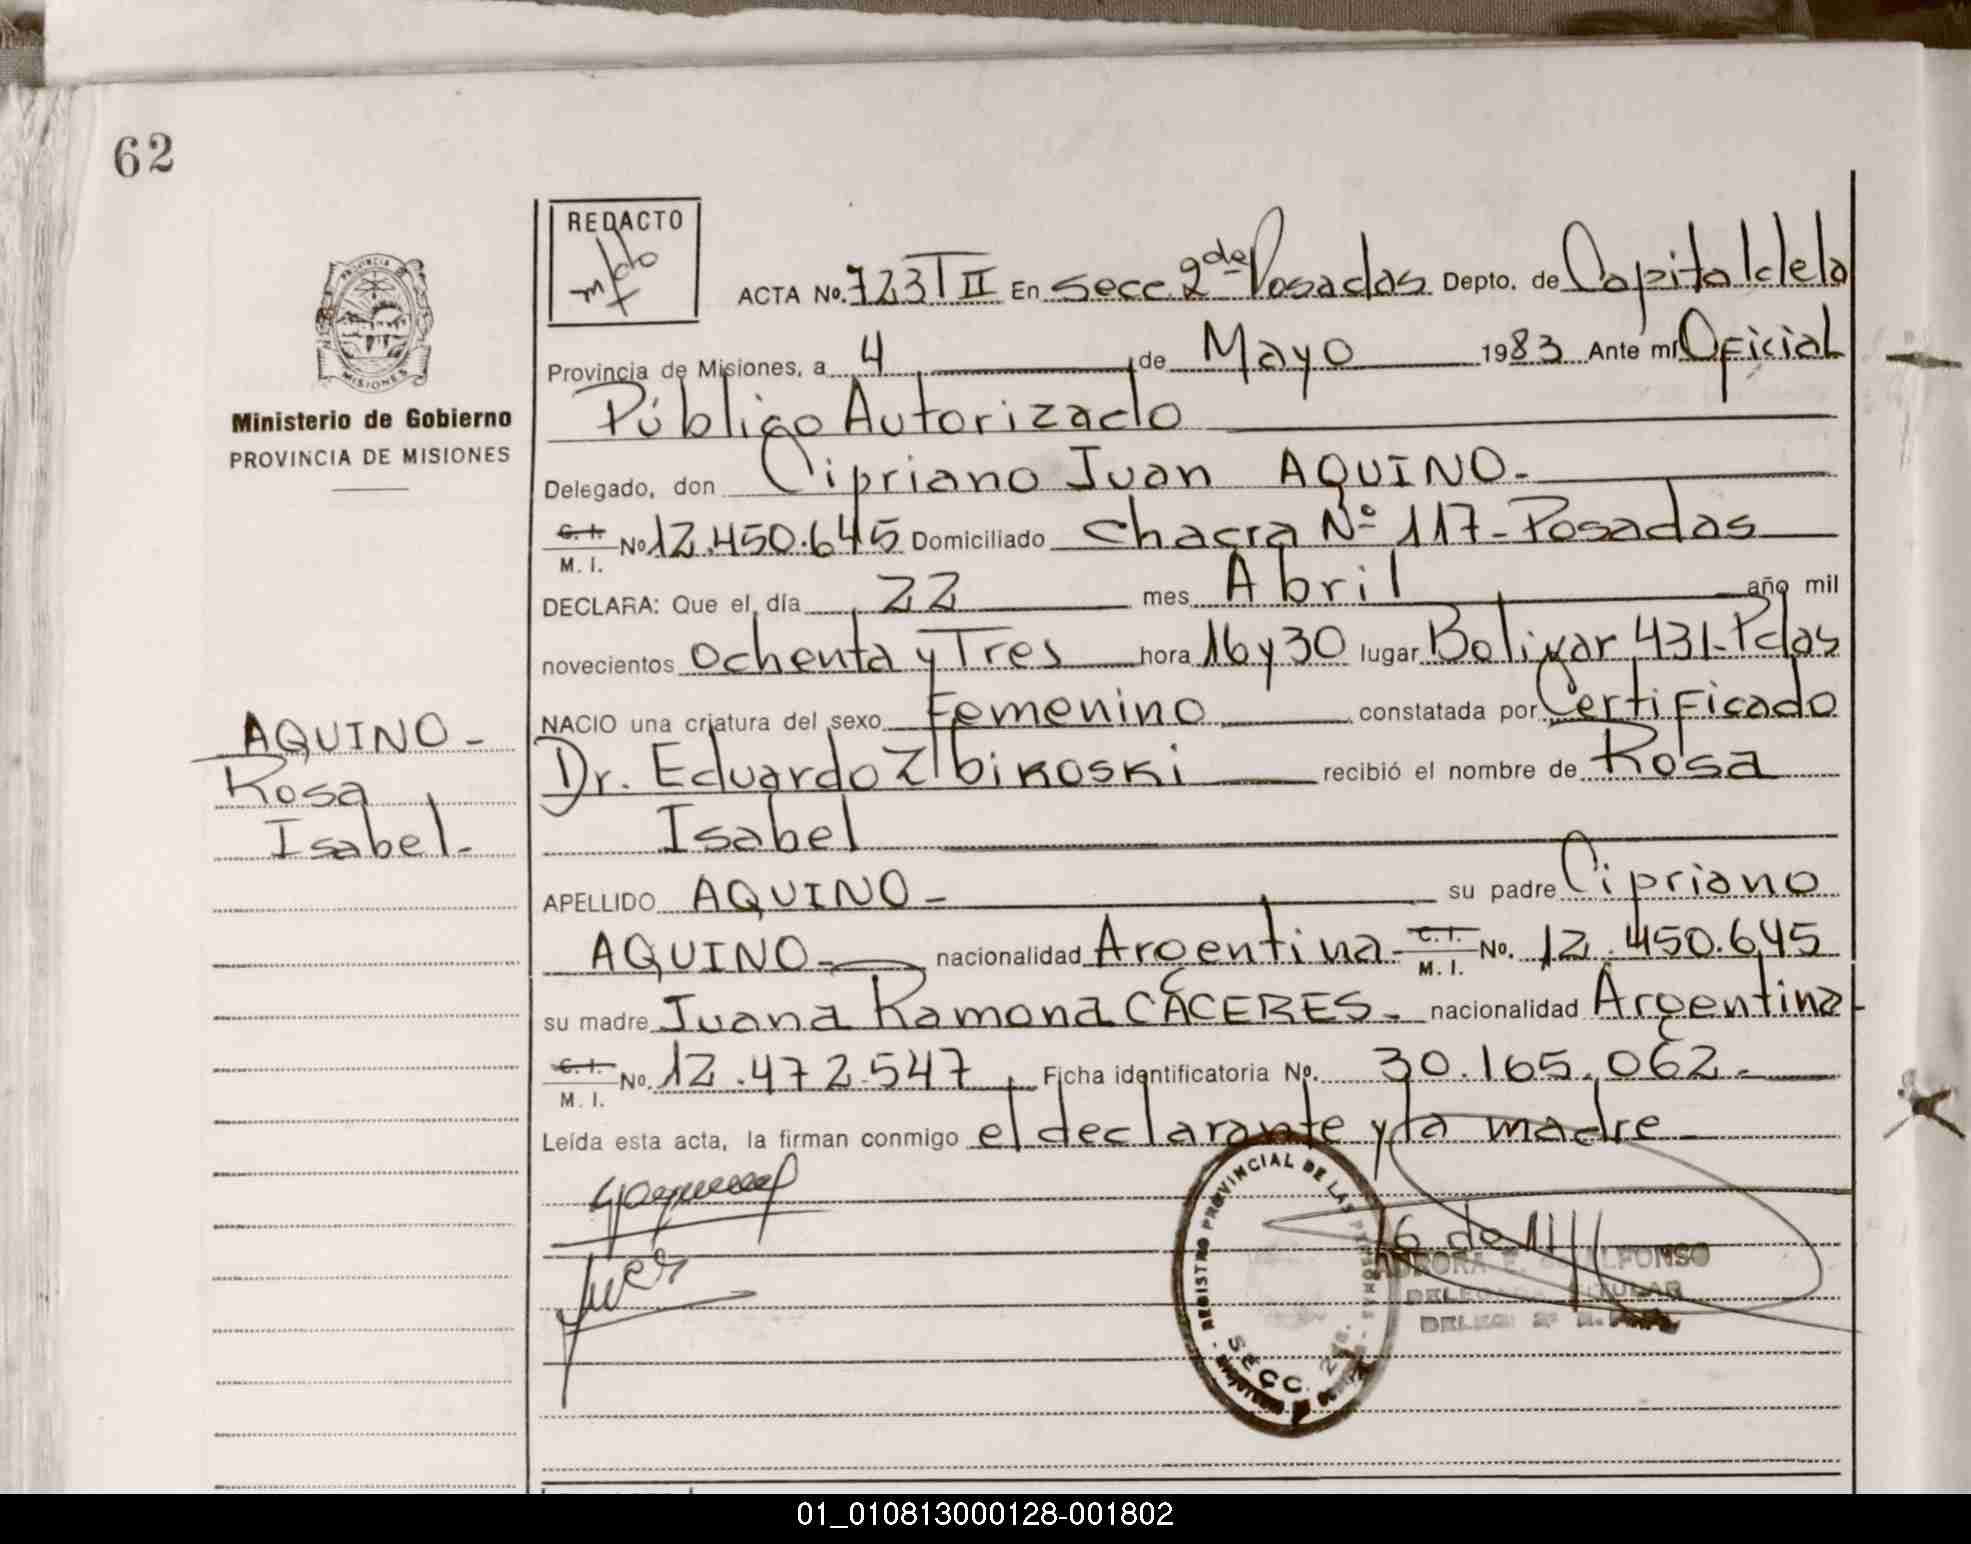 62
REDACTO
PROVINCIA DE
MISIONES
Ministerio de Gobierno
PROVINCIA DE MISIONES
ACTA No. 723 T II En secc. 2da Posadas Depto. de Capital de la
Provincia de Misiones, a 4 de Mayo 1983 Ante mi Oficial
Público Autorizado
Delegado, don Cipriano Juan AQUINO-
C. I.
M. I. No 12.450.645 Domiciliado Chacra Nº 117-Posadas
DECLARA: Que el día 22 mes Abril año mil
novecientos ochenta y Tres hora 16 y 30 lugar Bolivar 431-Pdas
NACIO una criatura del sexo Femenino constatada por Certificado
Dr. Eduardo Zlbikoski recibió el nombre de Rosa
Isabel
AQUINO-
Rosa
Isabel.
APELLIDO AQUINO- su padre Cipriano
AQUINO- nacionalidad Argentina- C. I.
M. I. No. 12.450.645
su madre Juana Ramona CÁCERES- nacionalidad Argentina-
C. I.
M. I. No. 12.472.547 Ficha identificatoria No. 30.165.062.-
Leída esta acta, la firman conmigo el declarante y la madre
REGISTRO PROVINCIAL DE LAS PERSONAS
SECC. 2da.
ALFONSO
DELEGADA TITULAR
01_010813000128-001802